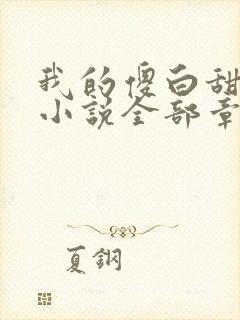 我的傻白甜
小说全部章
夏钢